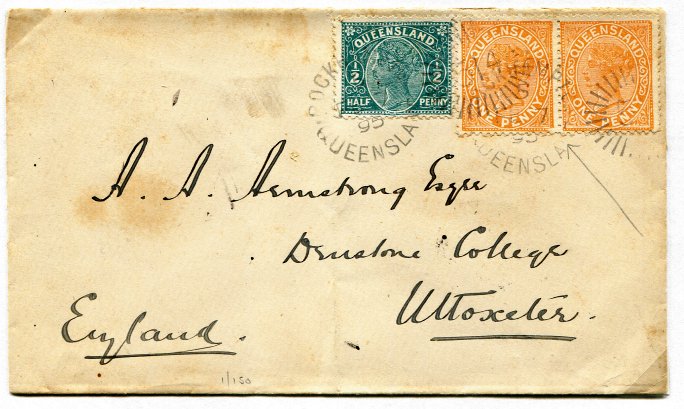 QUEENSLAND
½ ½
HALF PENNY
QUEENSLAND
ONE PENNY
QUEENSLAND
ONE PENNY
ROCK
95
QUEENSLA
14
95
QUEENSLA
A. A. Armstrong Esqre
Denstone College
Uttoxeter.
England.
1/150